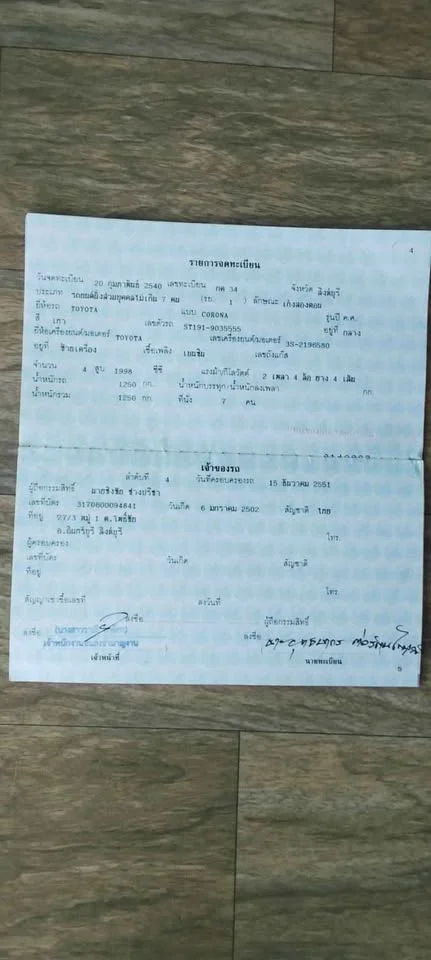 4
รายการจดทะเบียน
วันจดทะเบียน 20 กุมภาพันธ์ 2540 เลขทะเบียน กต 34 จังหวัด สิงห์บุรี
ประเภท รถยนต์นั่งส่วนบุคคลไม่เกิน 7 คน (รย. 1 ) ลักษณะ เก๋งสองตอน
ยี่ห้อรถ TOYOTA แบบ CORONA รุ่นปี ค.ศ.
สี เทา เลขตัวรถ ST191-9035555 อยู่ที่ กลาง
ยี่ห้อเครื่องยนต์/มอเตอร์ TOYOTA เลขเครื่องยนต์/มอเตอร์ 3S-2196580
อยู่ที่ ซ้ายเครื่อง เชื้อเพลิง เบนซิน เลขถังแก๊ส
จำนวน 4 สูบ 1998 ซีซี แรงม้า/กิโลวัตต์ 2 เพลา 4 ล้อ ยาง 4 เส้น
น้ำหนักรถ 1250 กก. น้ำหนักบรรทุก/น้ำหนักลงเพลา กก.
น้ำหนักรวม 1250 กก. ที่นั่ง 7 คน
เจ้าของรถ
ลำดับที่ 4 วันที่ครอบครองรถ 15 ธันวาคม 2551
ผู้ถือกรรมสิทธิ์ นายชิงชัย ช่างปรีชา
เลขที่บัตร 3170600094841 วันเกิด 6 มกราคม 2502 สัญชาติ ไทย
ที่อยู่ 07/3 หมู่ 1 ต.โพธิ์ชัย
อ.อินทร์บุรี สิงห์บุรี โทร.
ผู้ครอบครอง
เลขที่บัตร วันเกิด สัญชาติ
ที่อยู่
โทร.
สัญญาเช่าซื้อเลขที่ ลงวันที่
ลงชื่อ ผู้ถือกรรมสิทธิ์
ลงชื่อ ลงชื่อ
เจ้าหน้าที่ นายทะเบียน
5